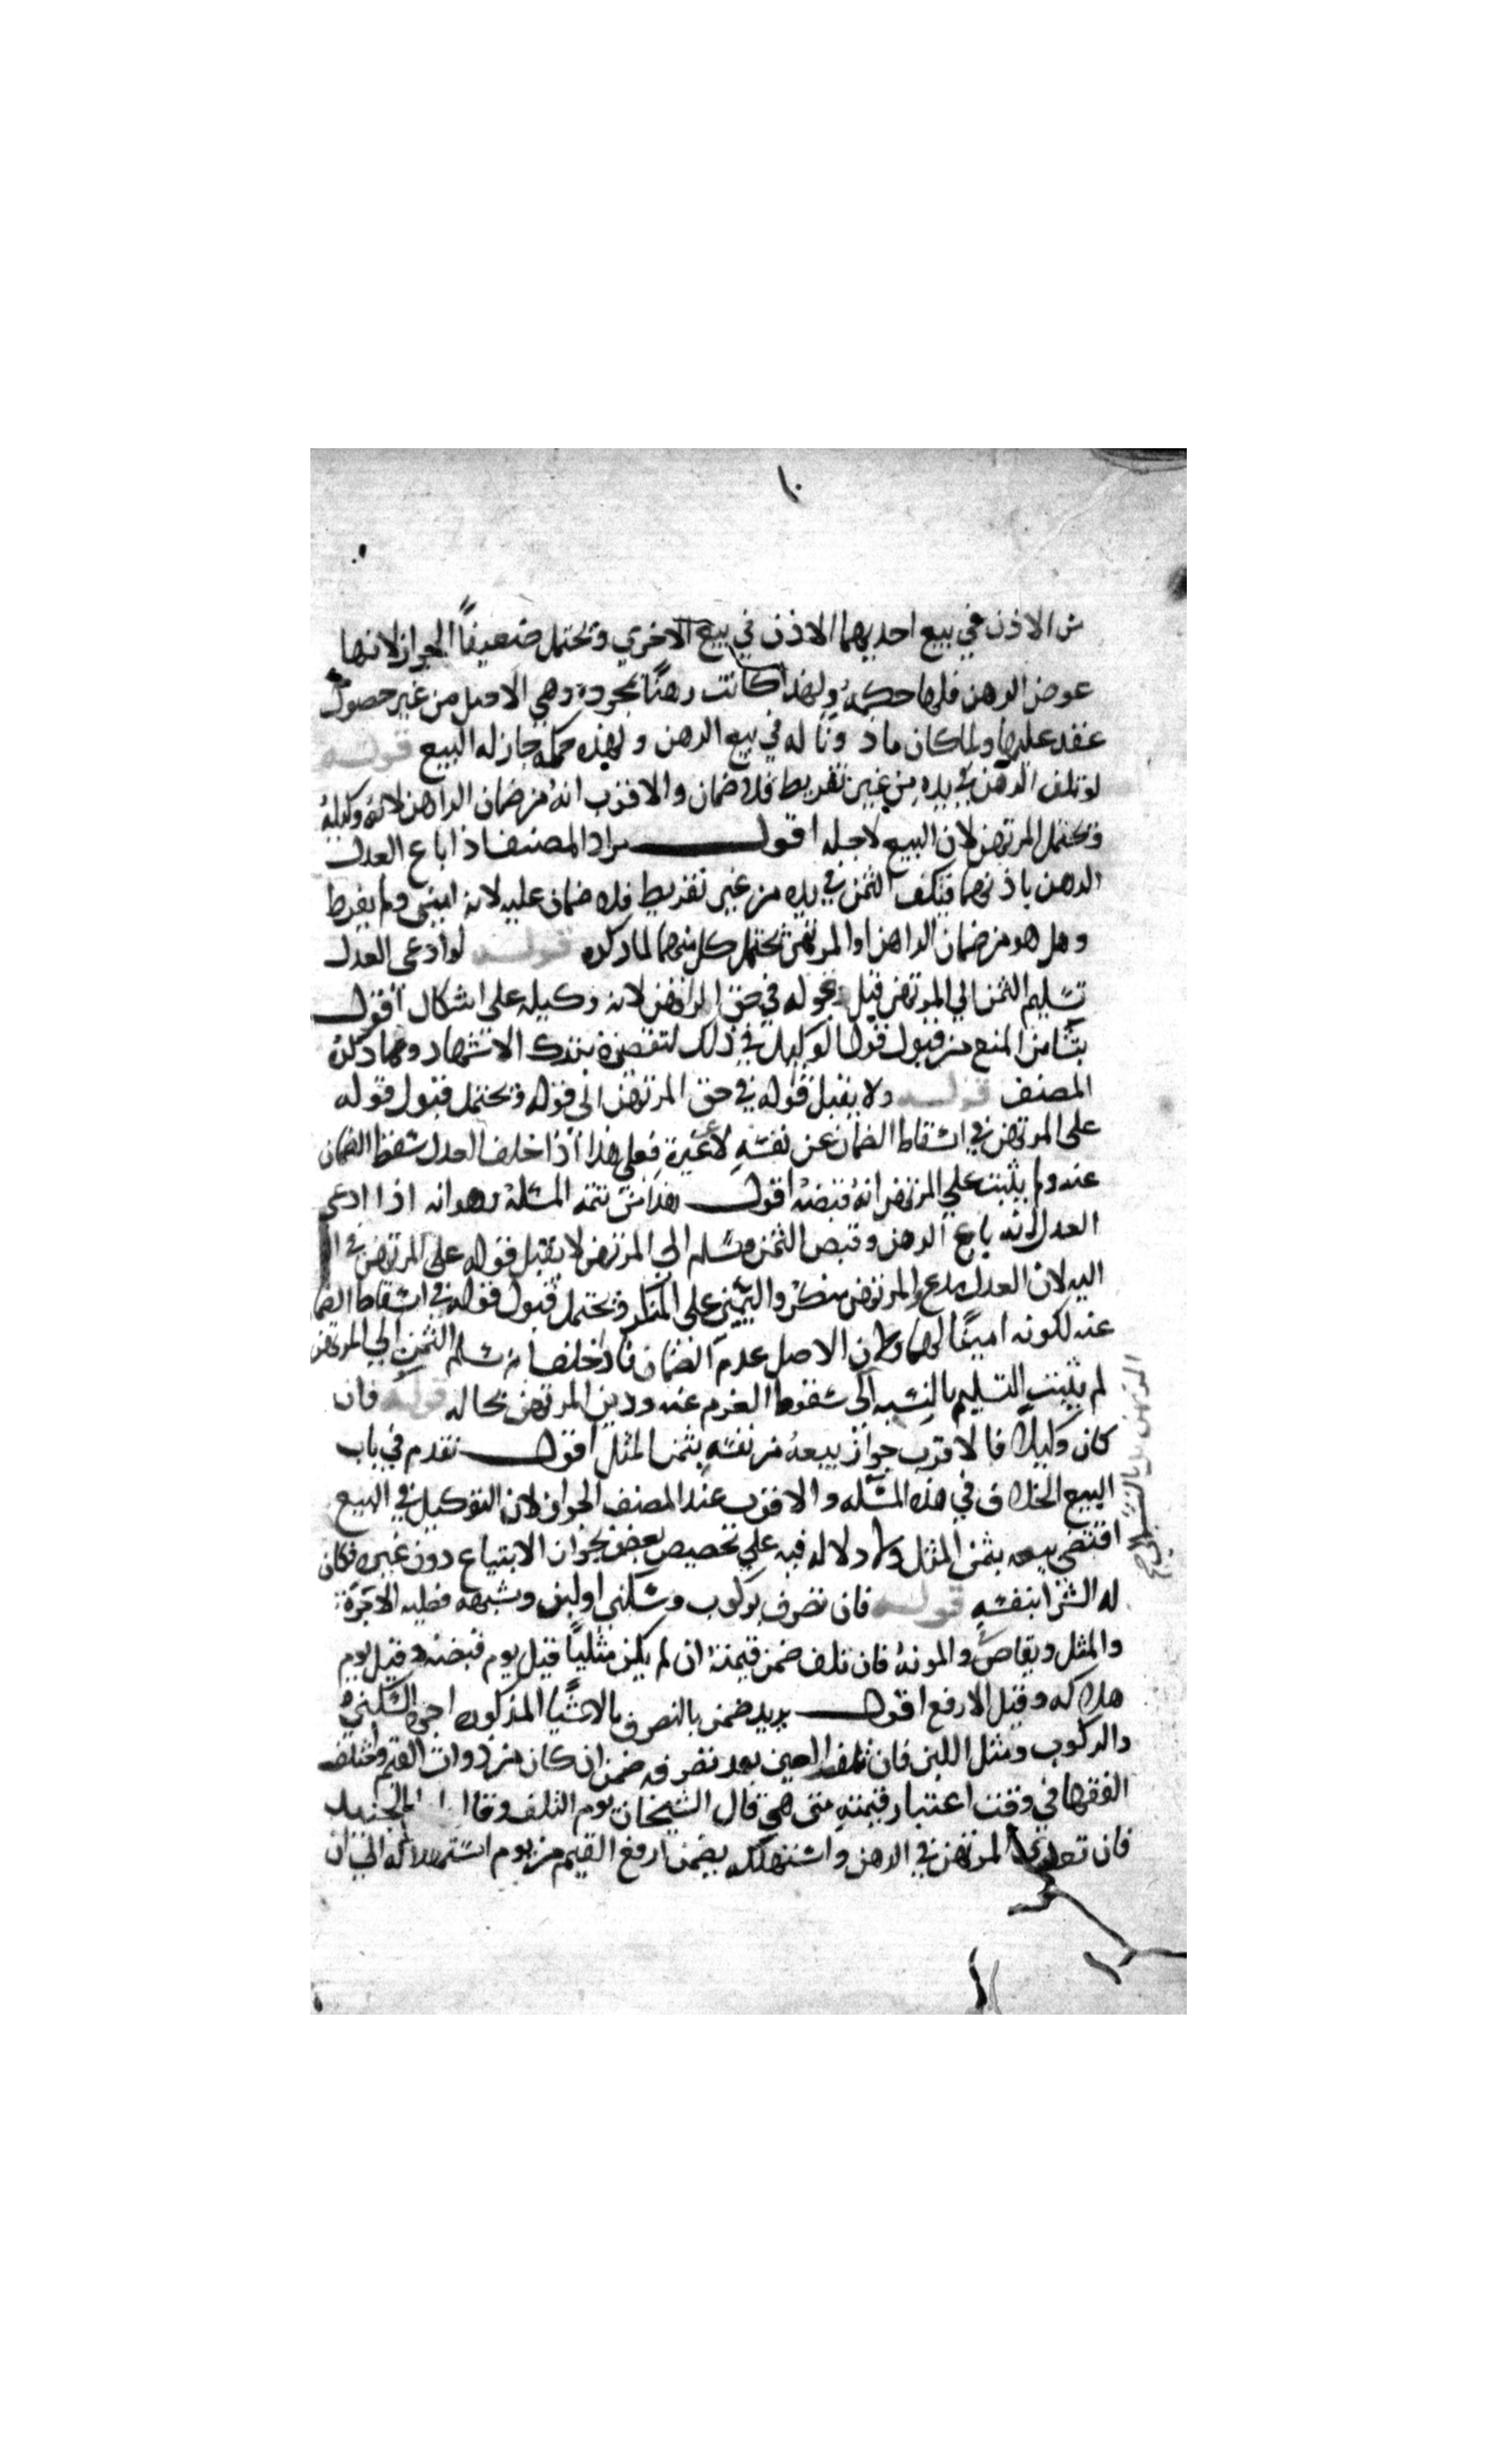 من الاذن في بيع احديهما الاذن في بيع الاخري ويحتمل ضعيفاً الجواز لانها
عوض الرهن فلها حكمه ولهذا كانت رهناً بمجرده وهي الاصل من غير حصول
عقد عليها ولما كان ماذوناً له في بيع الرهن ولهذه حكمه جاز له البيع قوله
لو تلف الرهن في يده من غير تفريط فلا ضمان والاقرب انه من ضمان الراهن لانه وكيله
ويحتمل المرتهن لان البيع لاجله اقول مراد المصنف اذا باع العدل
الرهن باذنهما فتلف الثمن في يده من غير تفريط فلا ضمان عليه لانه امين ولم يفرط
وهل هو من ضمان الراهن او المرتهن يحتمل كل منهما لما ذكره قوله لو ادعى العدل
تسليم الثمن الي المرتهن قبل قوله في حق الراهن لانه وكيله على اشكال اقول
ينشا من المنع من قبول قول الوكيل في ذلك لتقصيره بترك الاشهاد ومما ذكره
المصنف قوله ولا يقبل قوله في حق المرتهن الى قوله ويحتمل قبول قوله
على المرتهن في اسقاط الضمان عن نفسه لا غيره فعلى هذا اذا حلف العدل سقط الضمان
عنه ولم يثبت علي المرتهن انه قبضه اقول هذا من تتمة المسئلة وهو انه اذا ادعى
العدل انه باع الرهن وقبض الثمن وسلم الى المرتهن لا يقبل قوله على المرتهن في
اليه لان العدل مدع والمرتهن منكر واليمين على المنكر ويحتمل قبول قوله في اسقاط الضما
عنه لكونه اميناً لهما ولان الاصل عدم الضمان فاذا حلف انه سلم الثمن الي المرتهن
لم يثبت التسليم بالنسبه الى سقوط الغرم عنه ودين المرتهن بحاله قوله فان
كان وكيلا فالاقرب جواز بيعه من نفسه بثمن المثل اقول تقدم في باب
البيع الخلاف في هذه المسئله والاقرب عند المصنف الجواز لان التوكيل في البيع
اقتضى بيعه بثمن المثل ولا دلاله فيه علي تخصيص بعض بجواز الابتياع دون غيره فكان
له الشرا بنفسه قوله فان تصرف بركوب وسكني او لبن وشبهه فعليه الاجرة
والمثل ويقاص والمونة فان تلف ضمن قيمته ان لم يكن مثلياً قيل يوم قبضه وقيل يوم
هلاكه وقيل الارفع اقول يريد ضمن بالتصرف بالاشيا المذكوره اجرة السكني
والركوب ومثل اللبن فان تلف العين بعد تصرفه ضمن ان كان من ذوات القيم واختلف
الفقها في وقت اعتبار قيمته متى هي قال الشيخان يوم التلف وقال ابن الجنيد
فان تعدى المرتهن في الرهن واستهلكه يضمن ارفع القيم من يوم استهلاكه الى ان